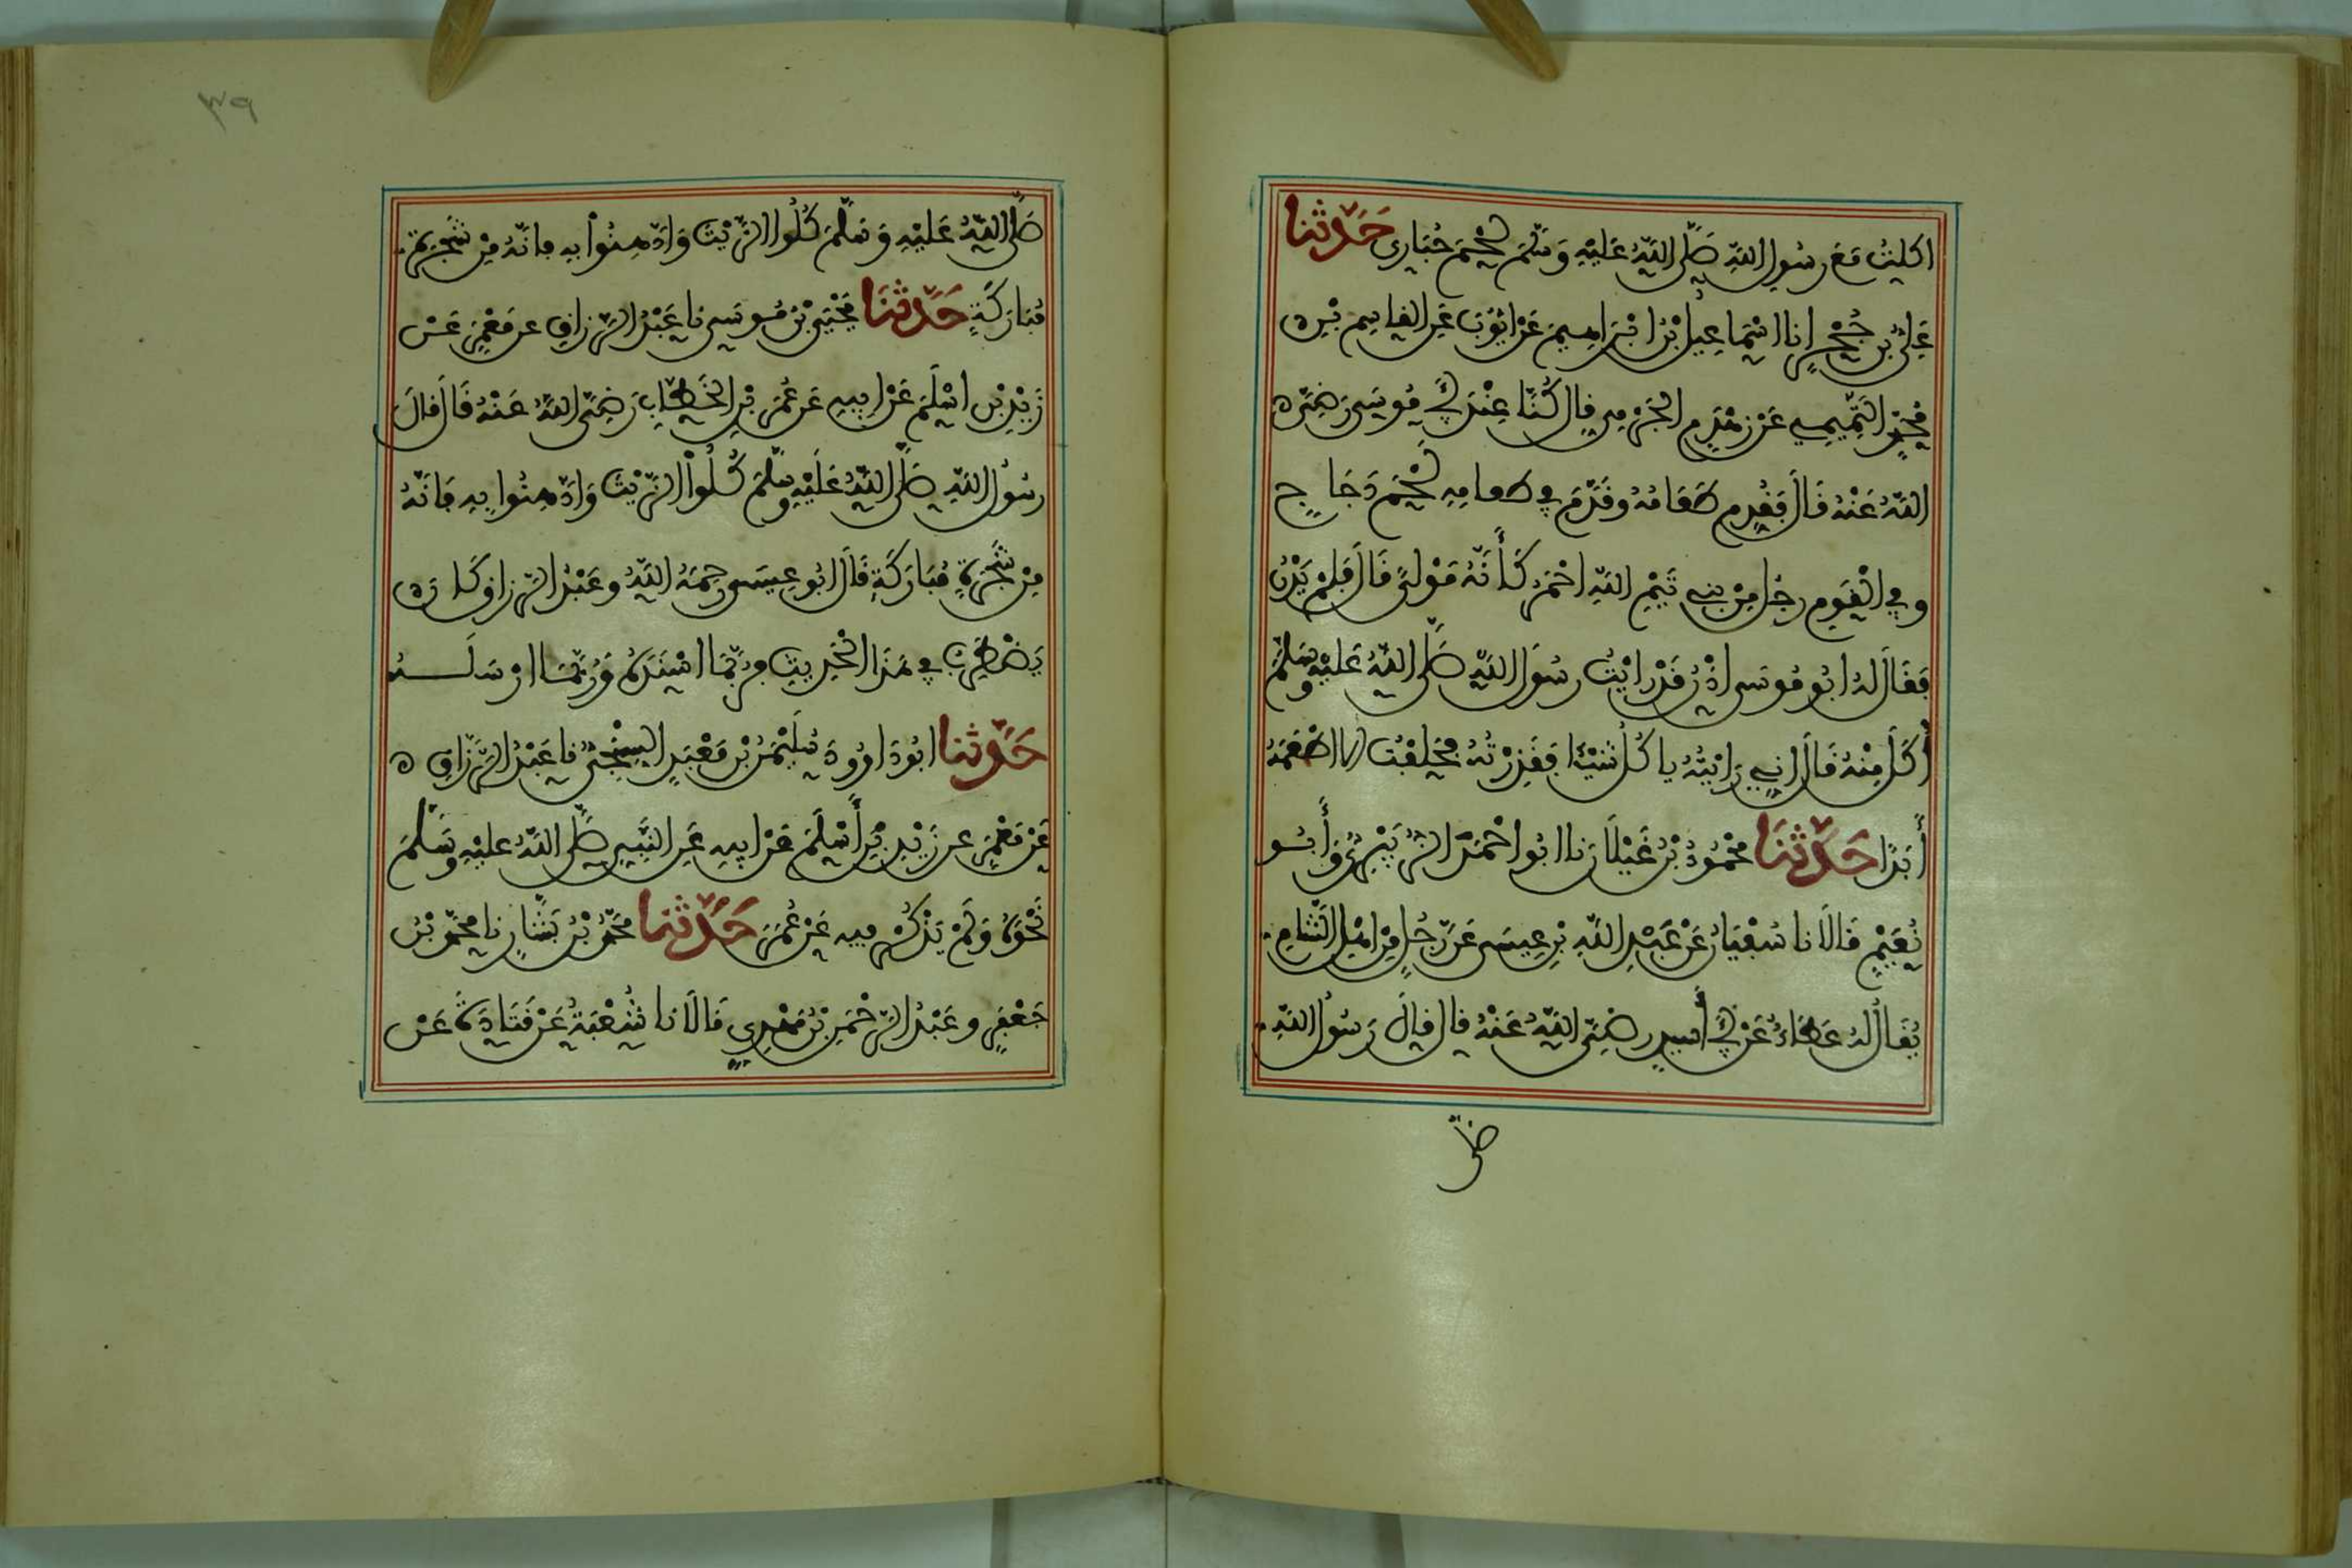 اكلت مع رسول الله صلى الله عليه وسلم لحم حبارى حدثنا
علي بن حجر انا اسماعيل بن ابراهيم عن ايوب عن القاسم
التميمي عن زهدم الجرمي قال كنا عند ابي موسى رضي
الله عنه قال فقدم طعامه وقدم في طعامه لحم دجاج
وفي القوم رجل من بني تيم الله احمر كأنه مولى قال فلم يدن
فقال له ابو موسى ادن قد رايت رسول الله صلى الله عليه وسلم
أكل منه قال اني رايته ياكل شيئا فقذرته فحلفت الا اطعمه
أبدا حدثنا محمود بن غيلان نا ابوا احمد الزبيري وأبو
نعيم قالا نا سفيان عن عبد الله بن عيسى عن رجل من اهل الشام
يقال له عطاء عن ابي أسيد رضي الله عنه قال قال رسول الله
صلى
٣٩
صلى الله عليه وسلم كلوا الزيت وادهنوا به فانه من شجرة
مباركة حدثنا يحيى بن موسى نا عبد الرزاق عن معمر عن
زيد بن اسلم عن ابيه عن عمر بن الخطاب رضي الله عنه قال قال
رسول الله صلى الله عليه وسلم كلوا الزيت وادهنوا به فانه
من شجرة مباركة قال ابو عيسى رحمه الله وعبد الرزاق كان
يضطرب في هذا الحديث فربما اسنده وربما ارسله
حدثنا ابو داوود سليمن بن معبد السنجي نا عبد الرزاق
عن معمر عن زيد بن أسلم عن ابيه عن النبي صلى الله عليه وسلم
نحوه ولم يذكر فيه عن عمر حدثنا محمد بن بشار نا محمد بن
جعفر وعبد الرحمن بن مهدي قالا نا شعبة عن قتادة عن